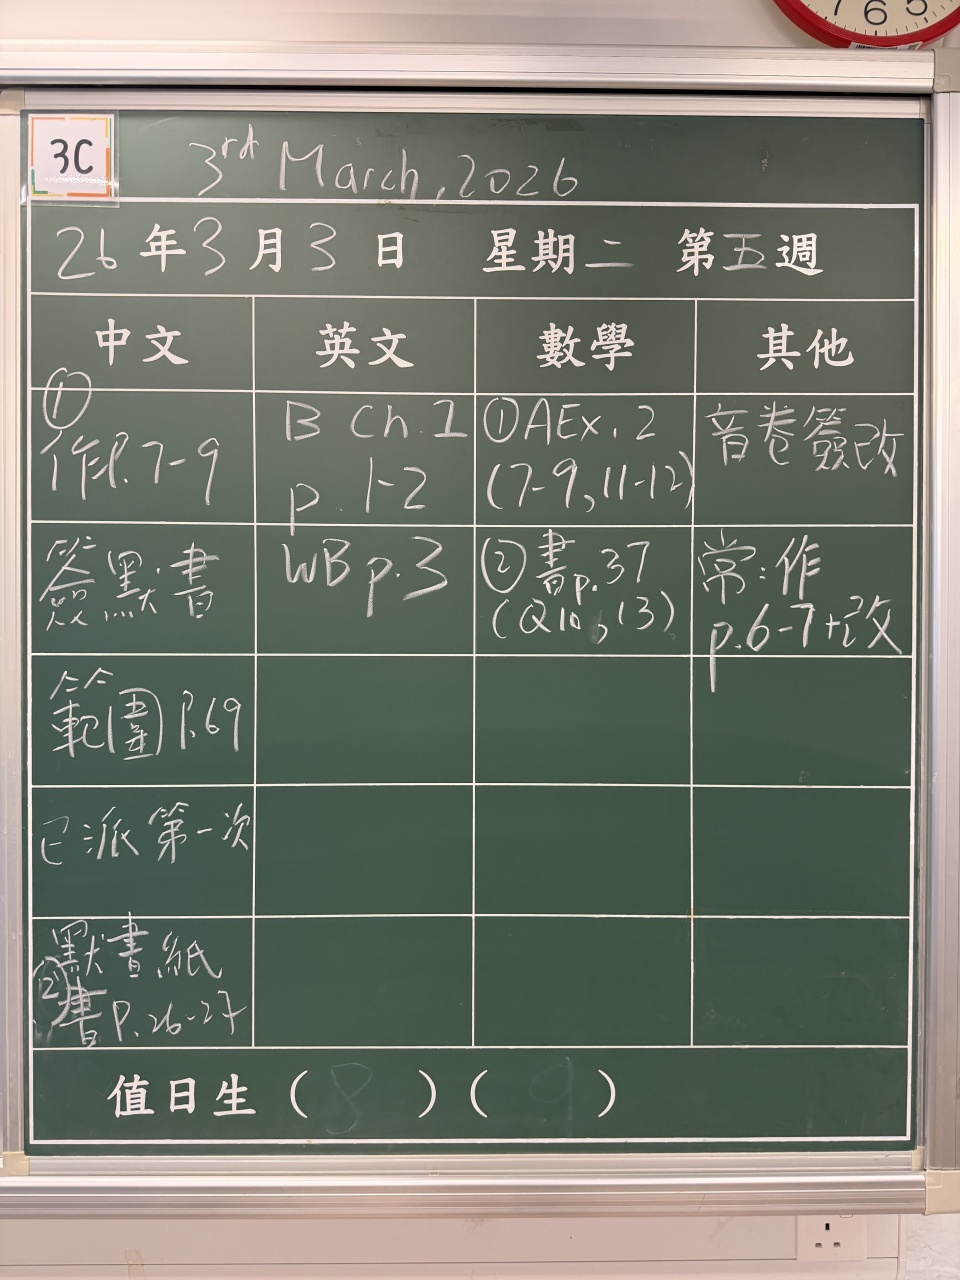 7 6 5
3C
3rd March, 2026
26年3月3日 星期二 第五週
中文 英文 數學 其他
①
作P.7-9
簽默書
範圍P.69
已派第一次
默書紙
②書P.26-27
B Ch.1
p. 1-2
WB p.3
①AEx.2
(7-9,11-12)
②書p.37
(Q10,13)
音卷簽改
常:作
p.6-7+改
值日生(8)(9)